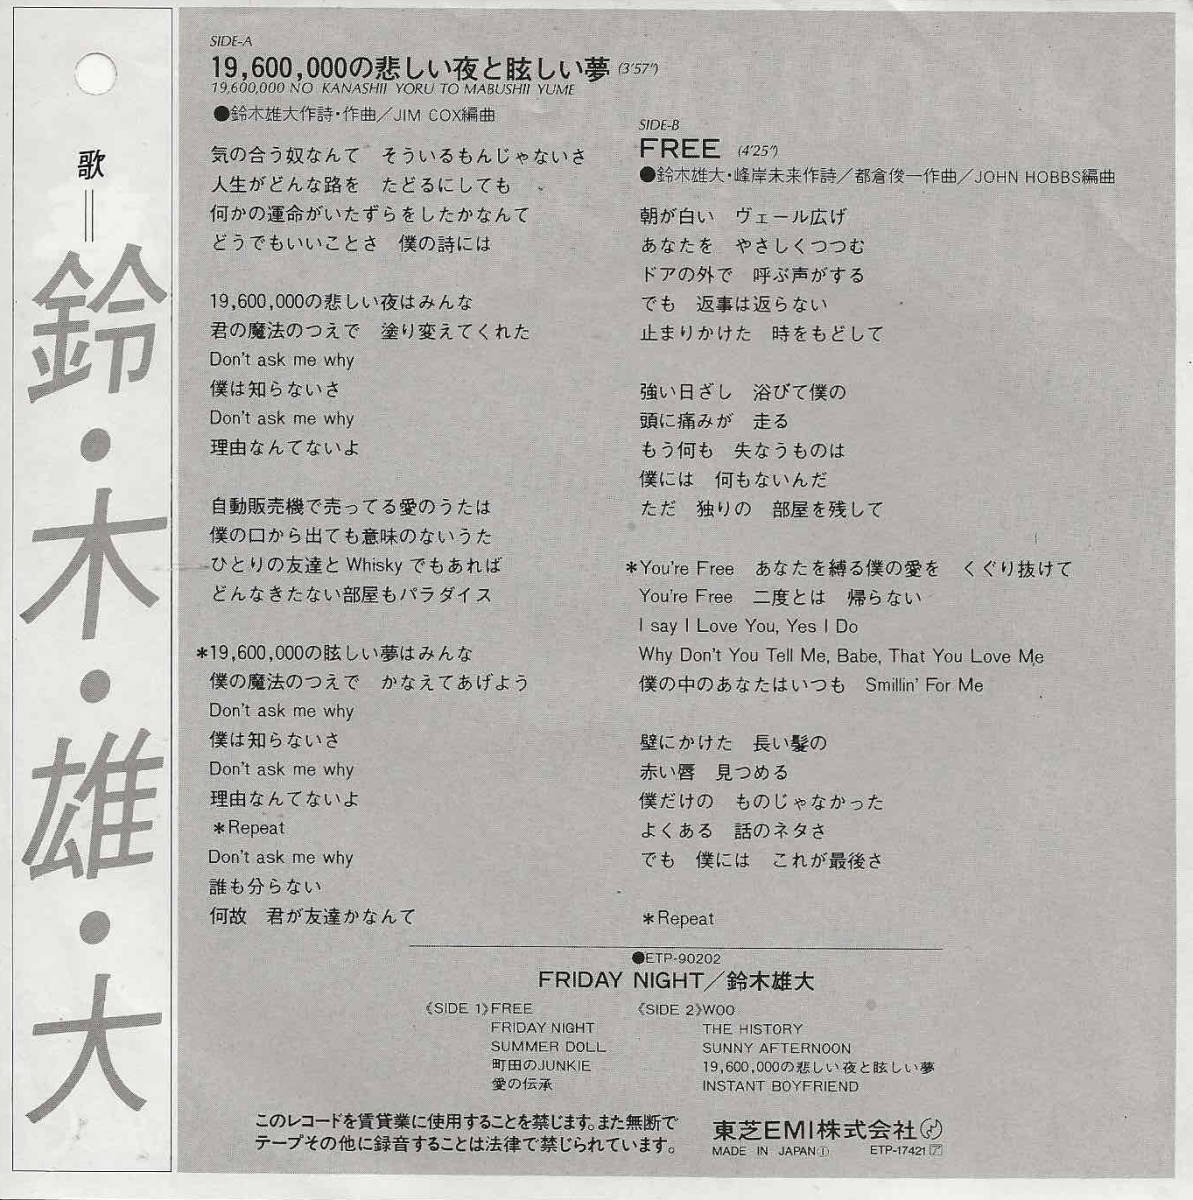 歌=鈴・木・雄・大
SIDE-A
19,600,000の悲しい夜と眩しい夢 (3'57")
19,600,000 NO KANASHII YORU TO MABUSHII YUME
●鈴木雄大作詩・作曲/JIM COX編曲
気の合う奴なんて そういるもんじゃないさ
人生がどんな路を たどるにしても
何かの運命がいたずらをしたかなんて
どうでもいいことさ 僕の詩には
19,600,000の悲しい夜はみんな
君の魔法のつえで 塗り変えてくれた
Don't ask me why
僕は知らないさ
Don't ask me why
理由なんてないよ
自動販売機で売ってる愛のうたは
僕の口から出ても意味のないうた
ひとりの友達と Whisky でもあれば
どんなきたない部屋もパラダイス
*19,600,000の眩しい夢はみんな
僕の魔法のつえで かなえてあげよう
Don't ask me why
僕は知らないさ
Don't ask me why
理由なんてないよ
*Repeat
Don't ask me why
誰も分らない
何故 君が友達かなんて
SIDE-B
FREE (4'25")
●鈴木雄大・峰岸未来作詩/都倉俊一作曲/JOHN HOBBS編曲
朝が白い ヴェール広げ
あなたを やさしくつつむ
ドアの外で 呼ぶ声がする
でも 返事は返らない
止まりかけた 時をもどして
強い日ざし 浴びて僕の
頭に痛みが 走る
もう何も 失なうものは
僕には 何もないんだ
ただ 独りの 部屋を残して
*You're Free あなたを縛る僕の愛を くぐり抜けて
You're Free 二度とは 帰らない
I say I Love You, Yes I Do
Why Don't You Tell Me, Babe, That You Love Me
僕の中のあなたはいつも Smillin' For Me
壁にかけた 長い髪の
赤い唇 見つめる
僕だけの ものじゃなかった
よくある 話のネタさ
でも 僕には これが最後さ
*Repeat
●ETP-90202
FRIDAY NIGHT/鈴木雄大
《SIDE 1》FREE
FRIDAY NIGHT
SUMMER DOLL
町田のJUNKIE
愛の伝承
《SIDE 2》WOO
THE HISTORY
SUNNY AFTERNOON
19,600,000の悲しい夜と眩しい夢
INSTANT BOYFRIEND
このレコードを賃貸業に使用することを禁じます。また無断で
テープその他に録音することは法律で禁じられています。
東芝EMI株式会社
MADE IN JAPAN① ETP-17421